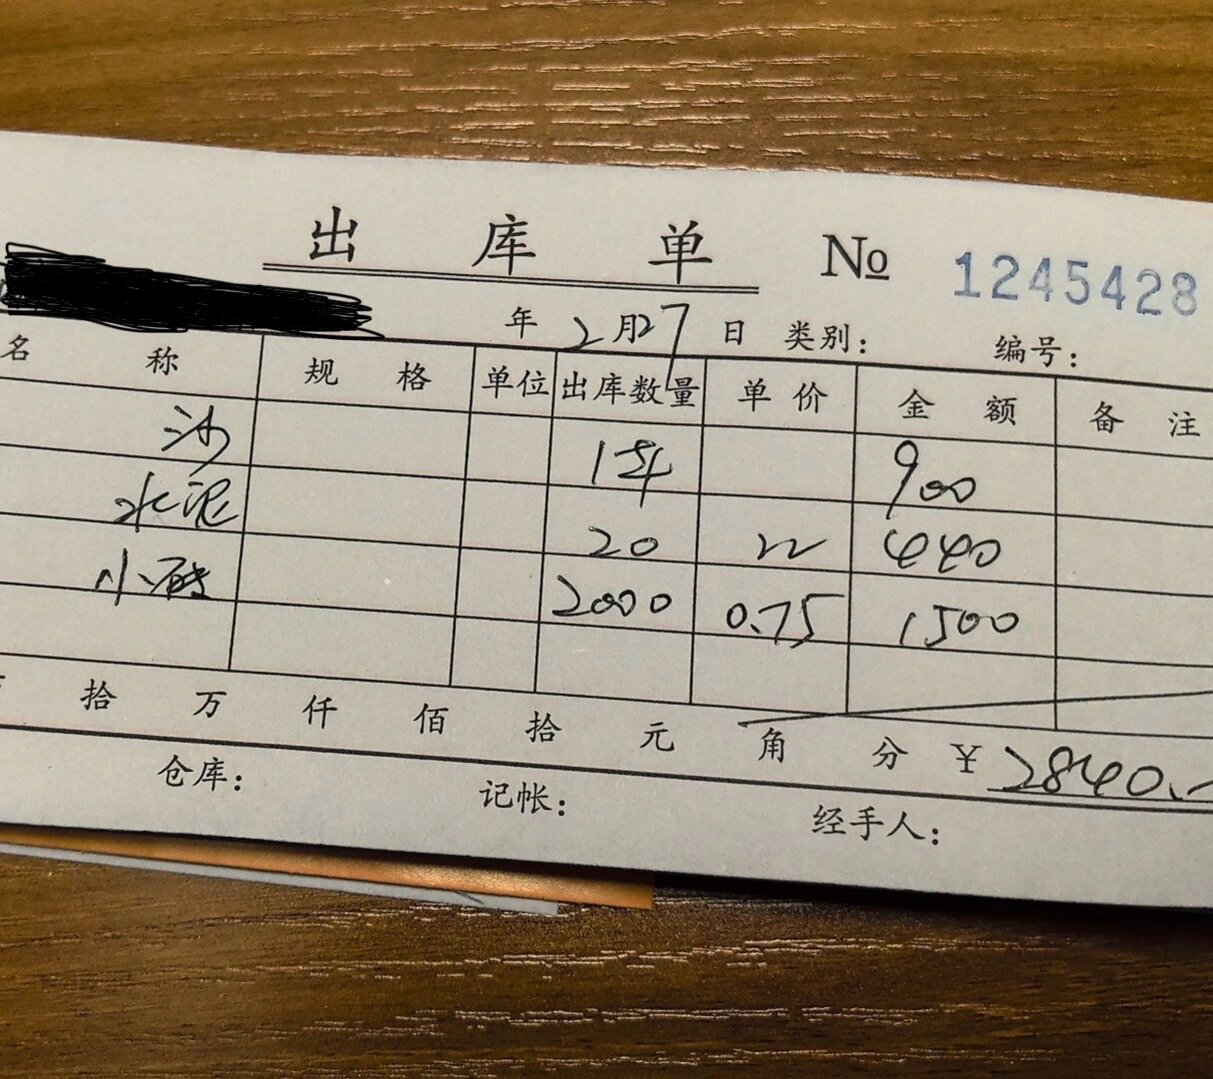 出库单 № 1245428
年 2月27日 类别: 编号:
名称 规格 单位 出库数量 单价 金额 备注
沙 1车 900
水泥 20 22 440
小砖 2000 0.75 1500
拾 万 仟 佰 拾 元 角 分 ¥ 2840.
仓库: 记帐: 经手人: